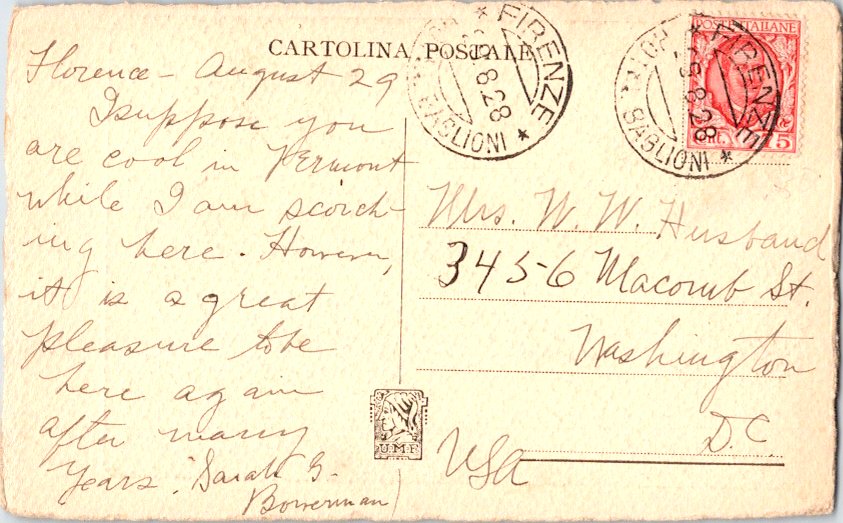 CARTOLINA POSTALE
Florence - August 29
I suppose you
are cool in Vermont
while I am scorch-
ing here. However,
it is a great
pleasure to be
here again
after many
years. Sarah G.
Bowerman
FIRENZE
HOTEL BAGLIONI
8 28
POSTE ITALIANE
FIRENZE
HOTEL BAGLIONI
8 28
Mrs. W. W. Husband
3456 Macomb St.
Washington
D.C.
USA
U.M.F.